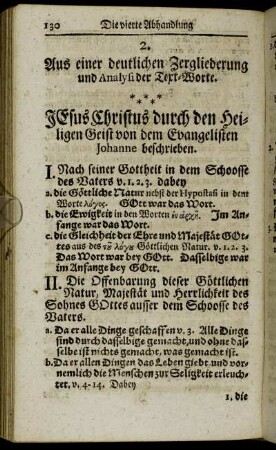 130 Die vierte Abhandlung
2.
Aus einer deutlichen Zergliederung
und Analysi der Text-Worte.
* * *
* * *
JEsus Christus durch den Hei-
ligen Geist von dem Evangelisten
Johanne beschrieben.
I. Nach seiner Gottheit in dem Schoosse
des Vaters v. 1. 2. 3. dabey
a. die Göttliche Natur nebst der Hypostasi in dem
Worte λόγος. GOtt war das Wort.
b. die Ewigkeit in den Worten ἐν ἀρχῇ. Im An-
fange war das Wort.
c. die Gleichheit der Ehre und Majestät GOt-
tes aus des τοῦ λόγου Göttlichen Natur. v. 1. 2. 3.
Das Wort war bey GOtt. Dasselbige war
im Anfange bey GOtt.
II. Die Offenbarung dieser Göttlichen
Natur, Majestät und Herrlichkeit des
Sohnes GOttes ausser dem Schoosse des
Vaters.
a. Da er alle Dinge geschaffen v. 3. Alle Dinge
sind durch dasselbige gemacht, und ohne das-
selbe ist nichts gemacht, was gemacht ist.
b. Da er allen Dingen das Leben giebt, und vor-
nemlich die Menschen zur Seligkeit erleuch-
tet. v. 4-14. Dabey
1. die